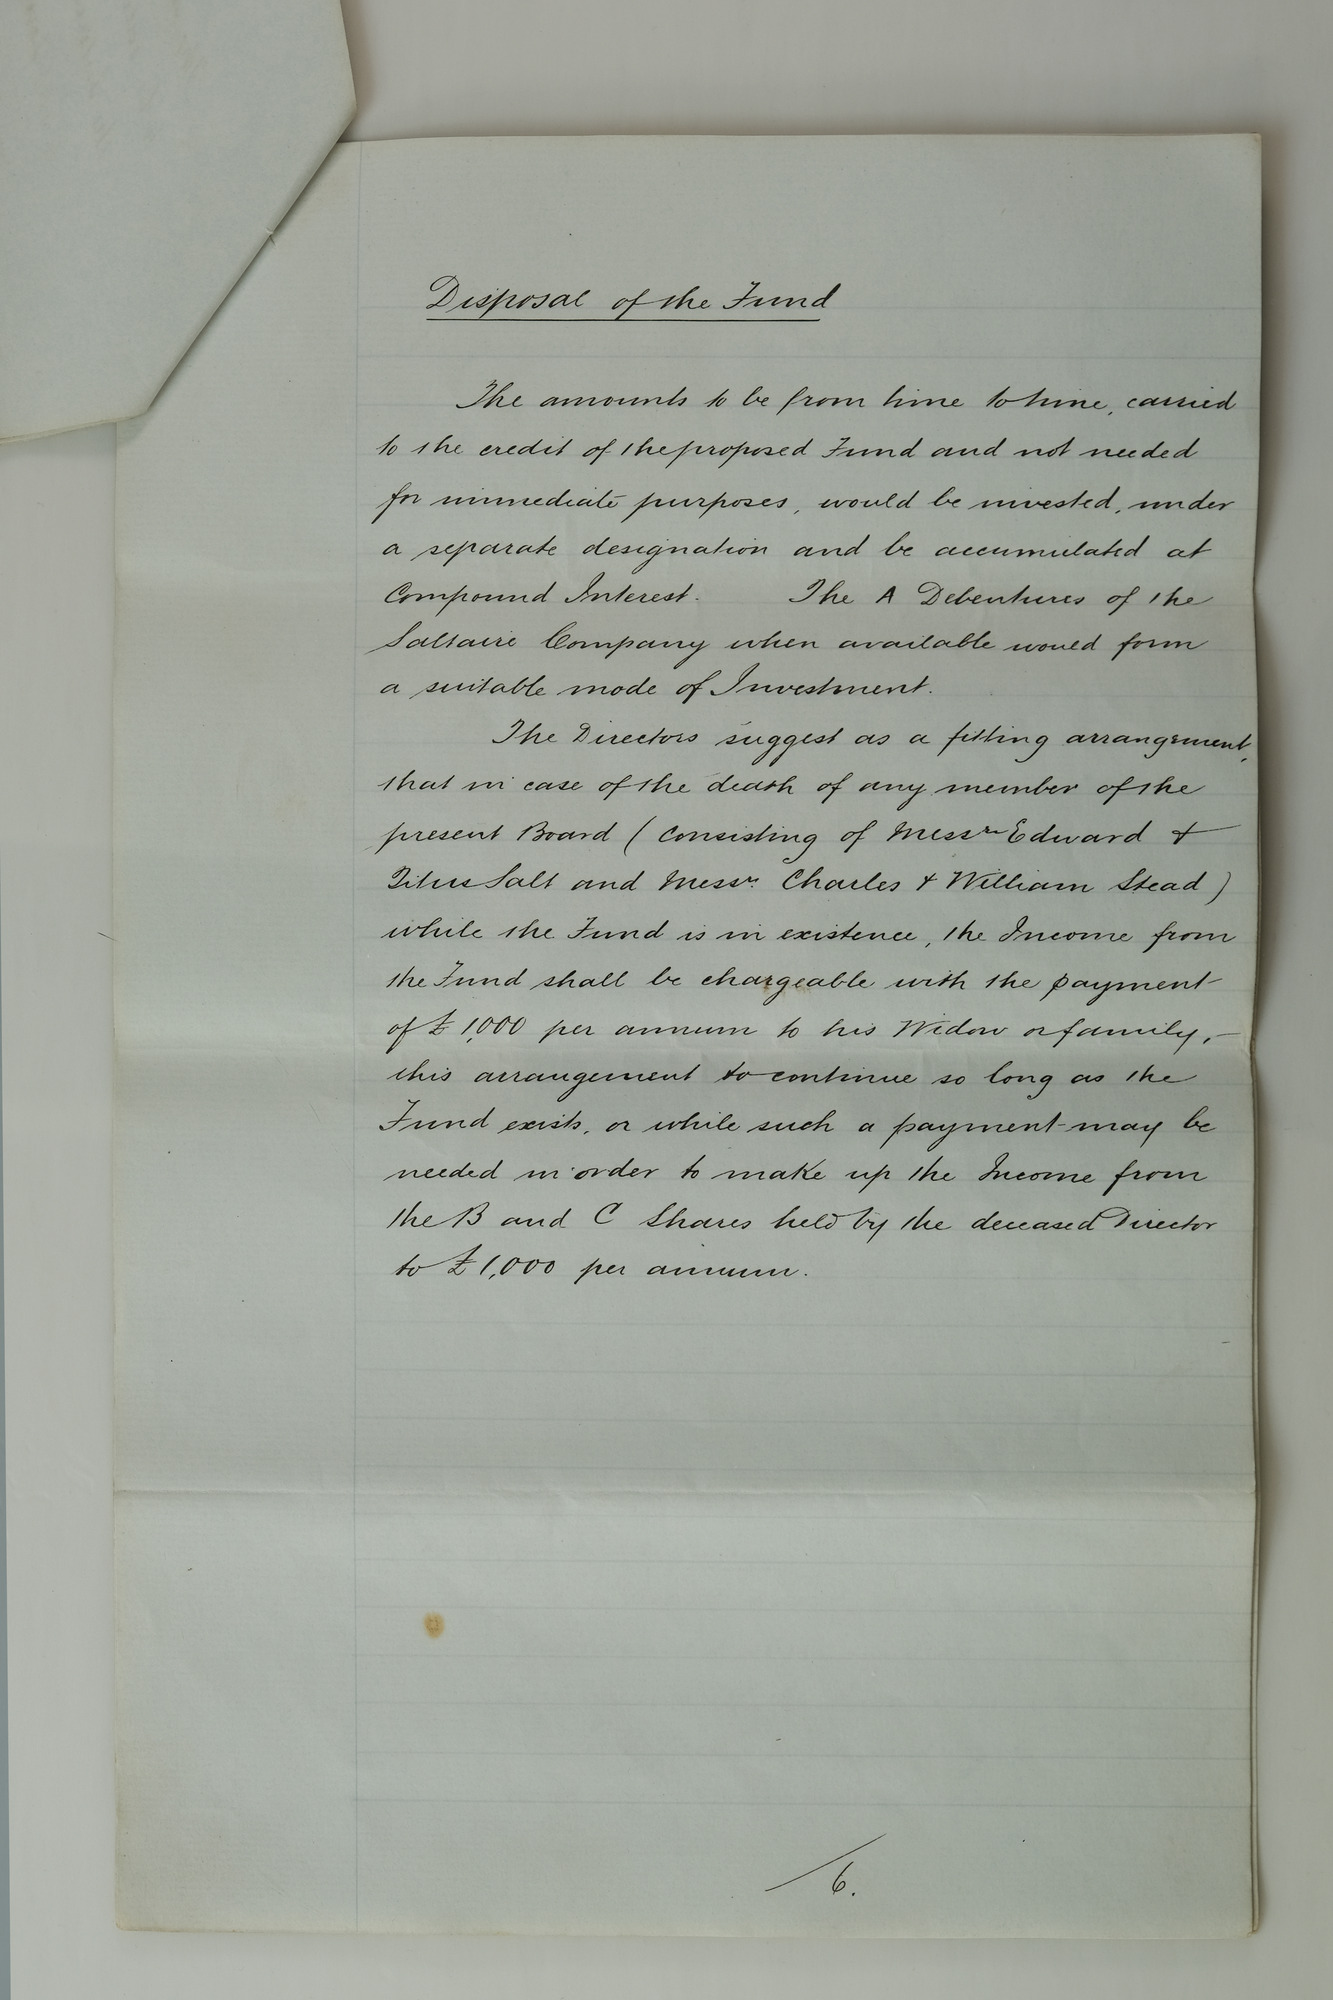 Disposal of the Fund
The amounts to be from time to time, carried
to the credit of the proposed Fund and not needed
for immediate purposes, would be invested, under
a separate designation and be accumulated at
Compound Interest. The A Debentures of the
Saltaire Company when available would form
a suitable mode of Investment.
The Directors suggest as a fitting arrangement,
that in case of the death of any member of the
present Board (consisting of Messrs Edward &
Titus Salt and Messrs. Charles & William Stead)
while the Fund is in existence, the Income from
the Fund shall be chargeable with the payment
of £1,000 per annum to his Widow or family,-
this arrangement to continue so long as the
Fund exists, or while such a payment may be
needed in order to make up the Income from
the B and C Shares held by the deceased Director
to £1,000 per annum.
6.